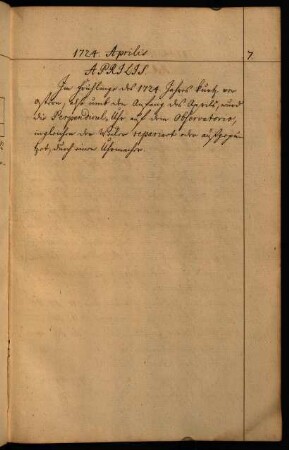 1724. Aprilis 7
APRILIS.
Im Frühlinge des 1724 Jahres kurtz vor
Ostern, den Anfang des Aprils, wurd
die Perpendicul-Uhr auf dem Observatorio,
ingleichen der repariert oder
durch einen Uhrmacher.